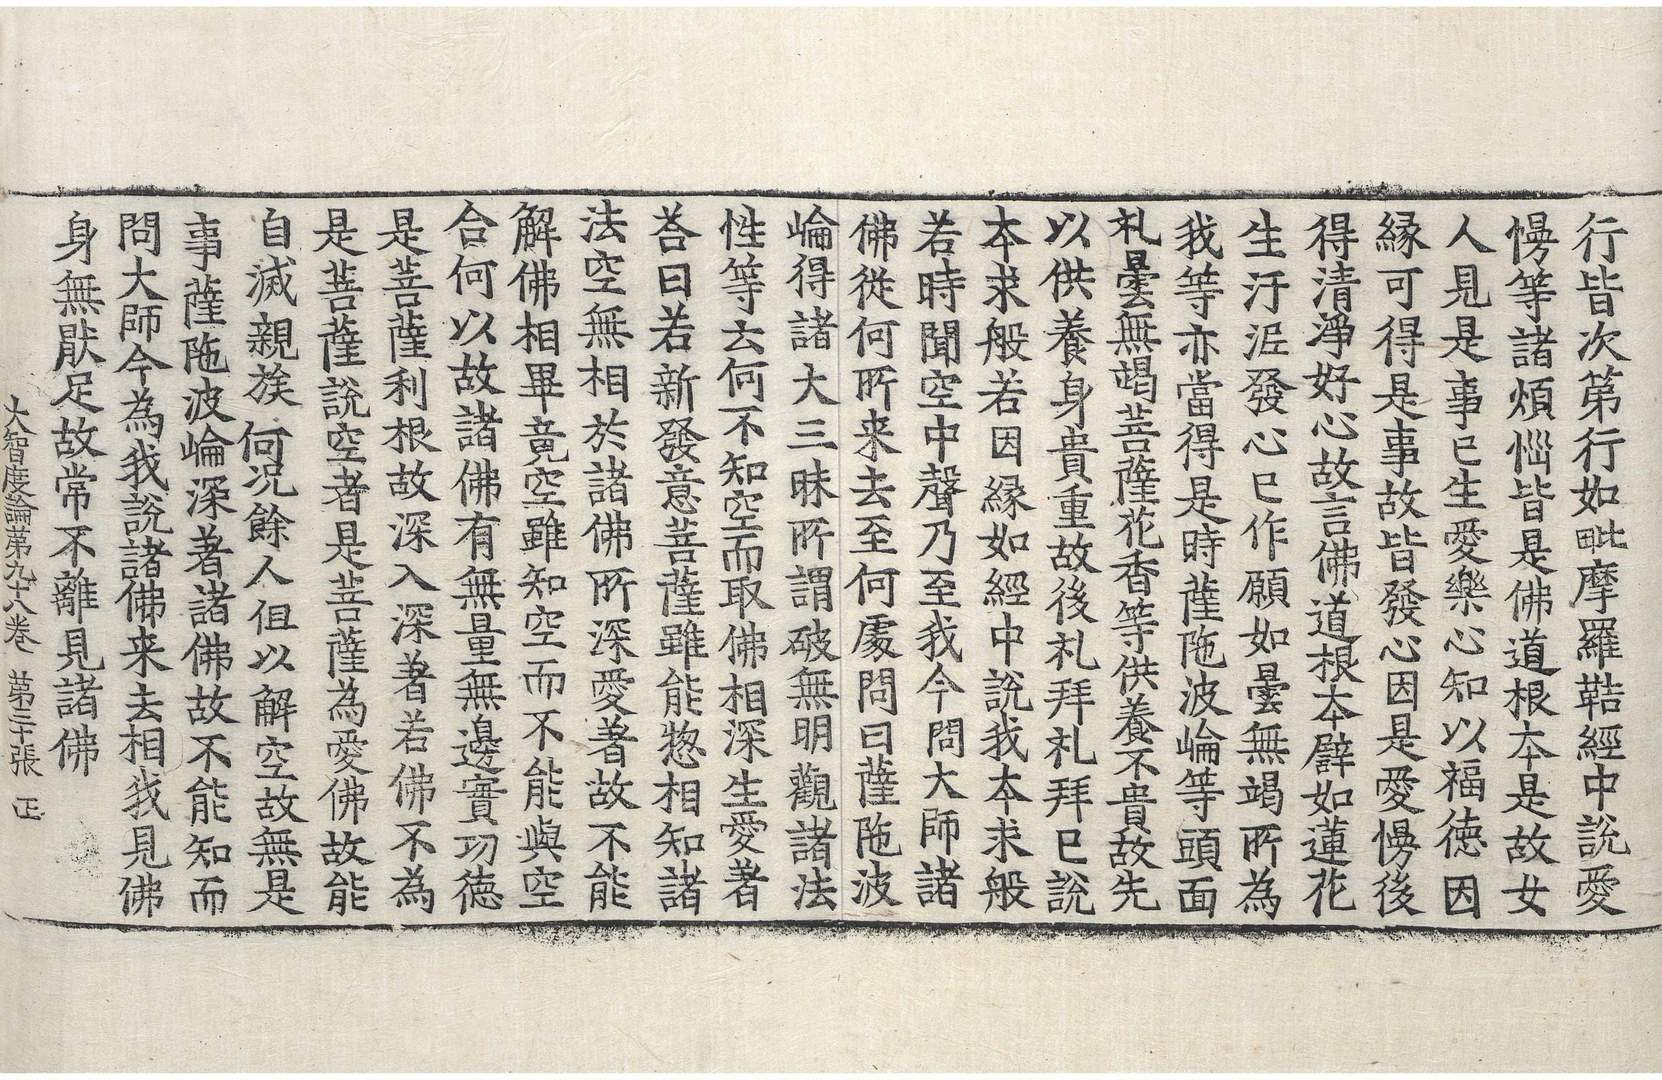 行皆次第行如毗摩羅鞊經中說愛
慢等諸煩惱皆是佛道根本是故女
人見是事已生愛樂心知以福德因
縁可得是事故皆發心因是愛慢後
得清淨好心故言佛道根本譬如蓮花
生汙泥發心已作願如曇無竭所為
我等亦當得是時薩陁波崘等頭面
礼曇無竭菩薩花香等供養不貴故先
以供養身貴重故後礼拜礼拜已說
本求般若因縁如經中說我本求般
若時聞空中聲乃至我今問大師諸
佛從何所来去至何處問曰薩陁波
崘得諸大三昧所謂破無明觀諸法
性等云何不知空而取佛相深生愛著
荅曰若新發意菩薩雖能惣相知諸
法空無相於諸佛所深愛著故不能
解佛相畢竟空雖知空而不能與空
合何以故諸佛有無量無邊實功德
是菩薩利根故深入深著若佛不為
是菩薩說空者是菩薩為愛佛故能
自滅親族何況餘人但以解空故無是
事薩陁波崘深著諸佛故不能知而
問大師今為我說諸佛来去相我見佛
身無猒足故常不離見諸佛
大智度論第九十八卷 第二十張 正